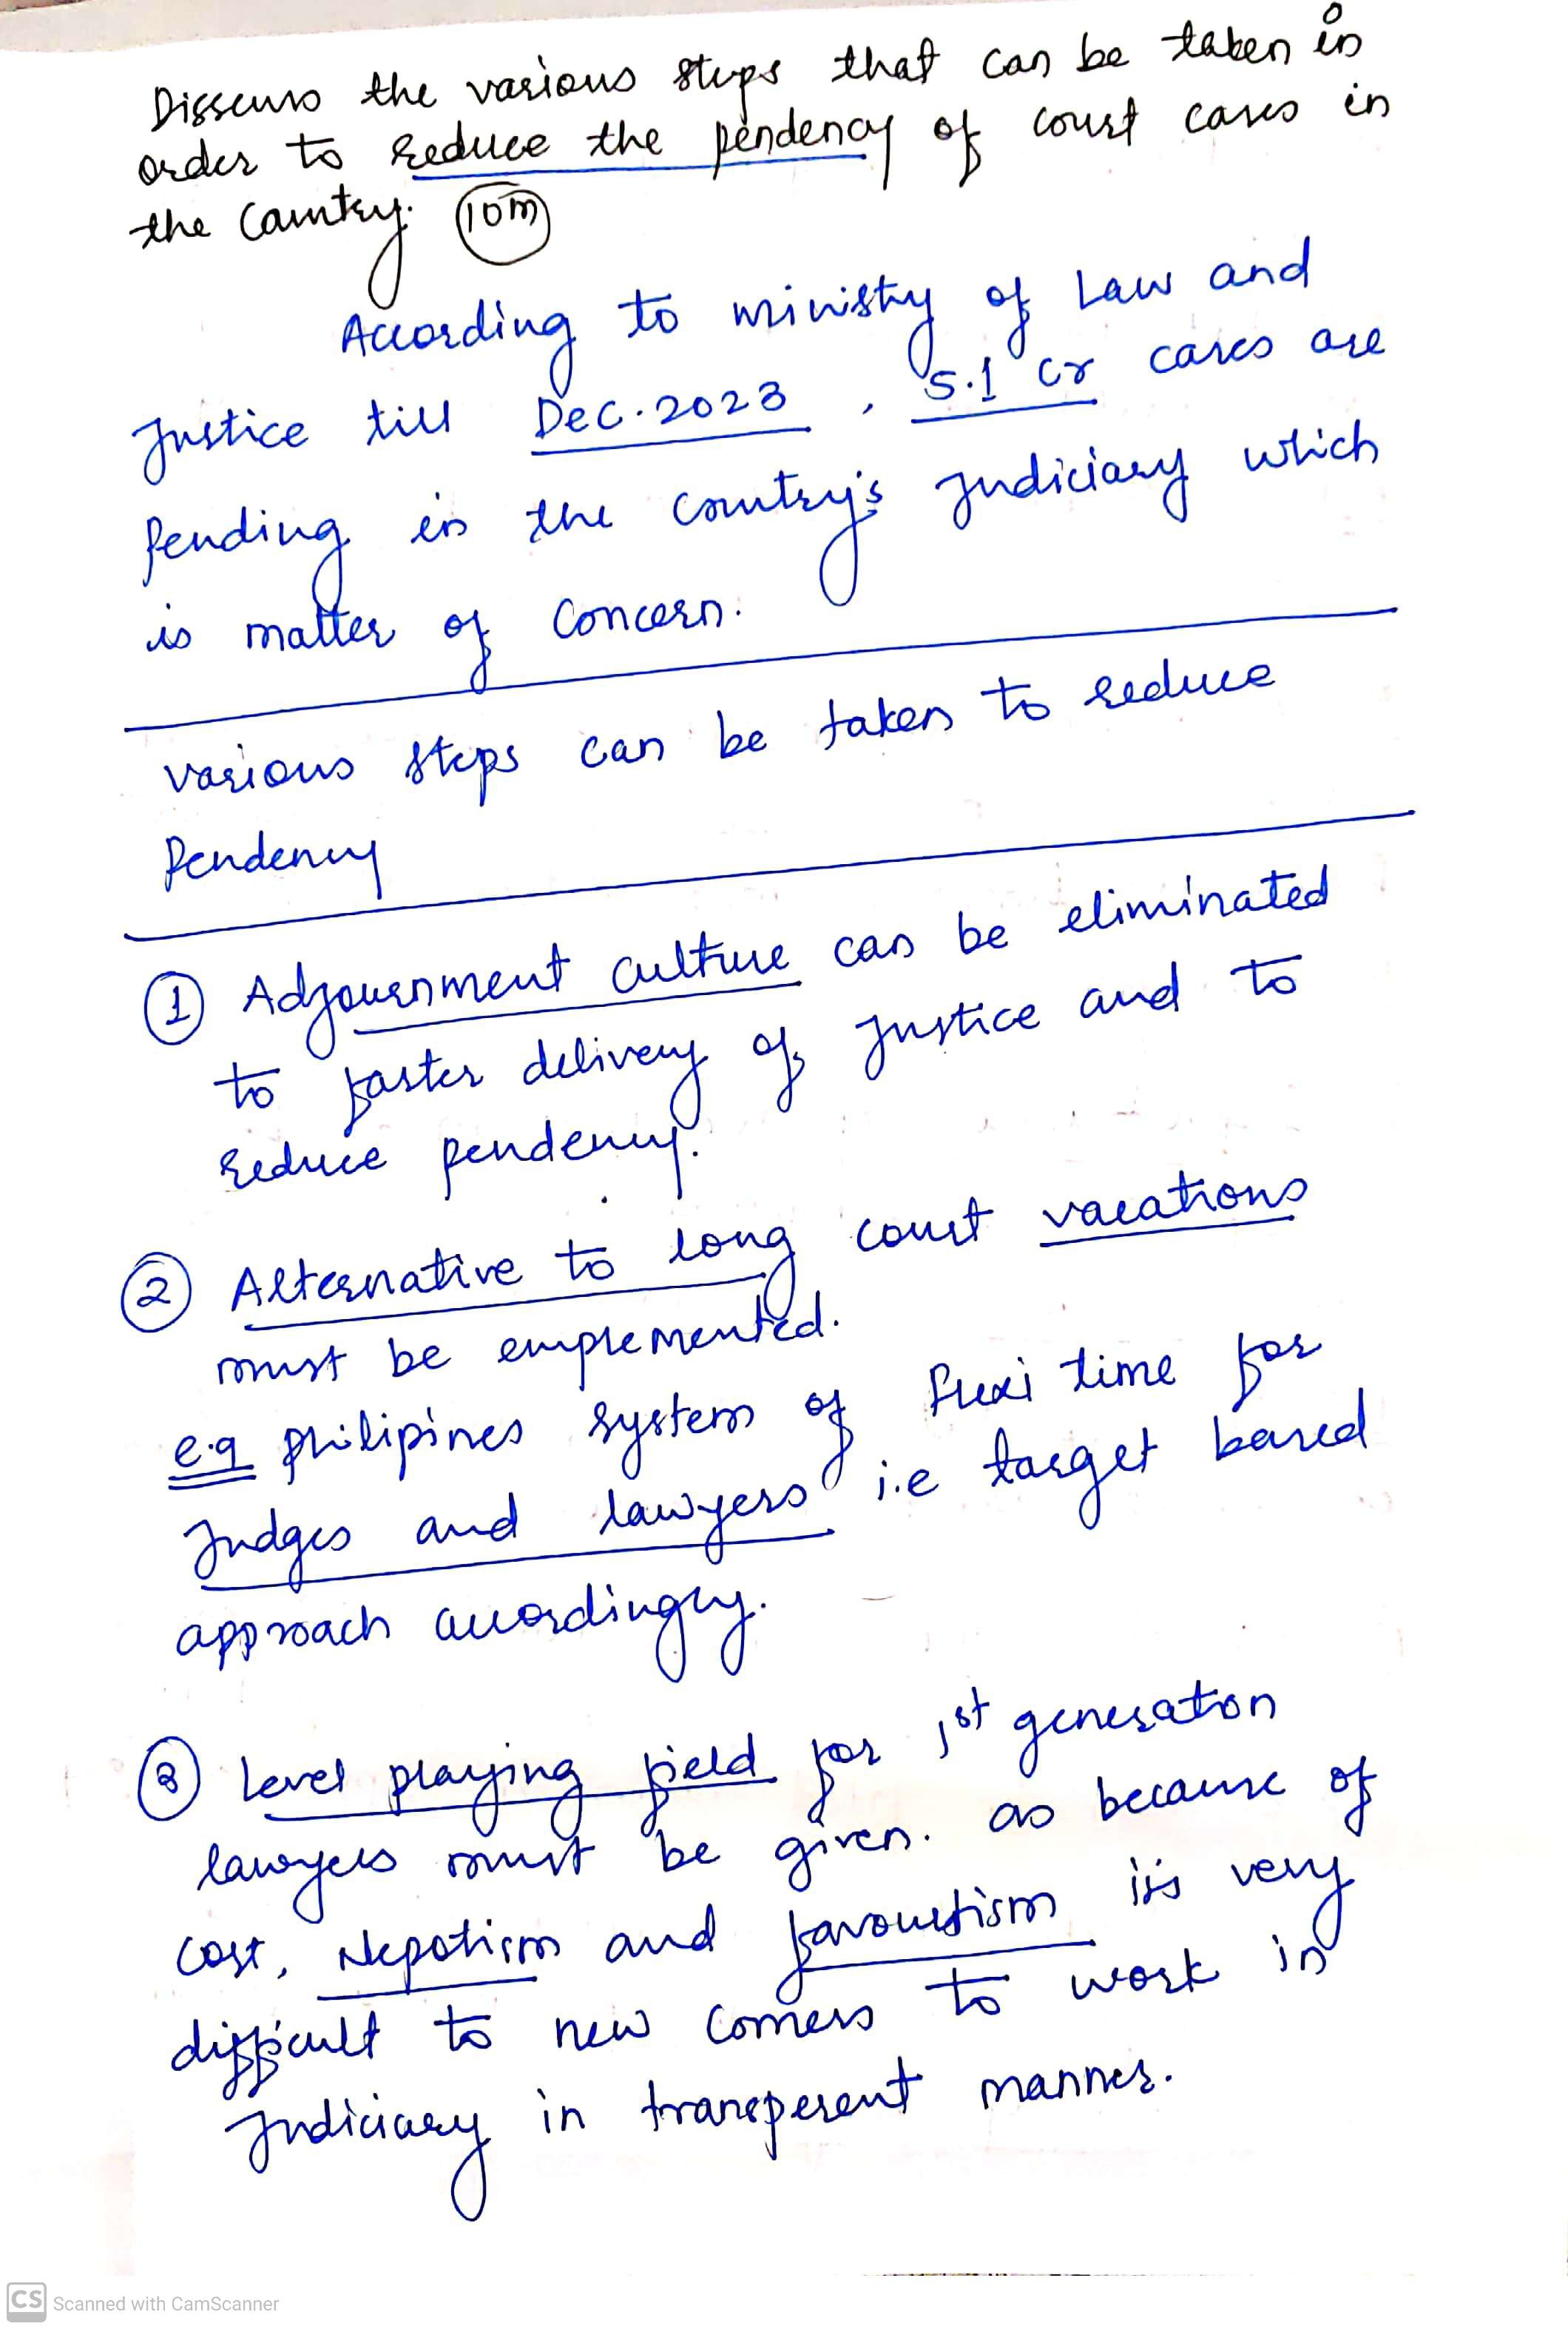 Disscuss the various steps that can be taken in
order to reduce the pendency of court cases in
the Country. 10m
According to ministry of Law and
Justice till Dec. 2023, 5.1 Cr cases are
Pending in the country's Judiciary which
is matter of Concern.
various steps can be taken to reduce
Pendency
① Adjournment culture can be eliminated
to faster delivery of Justice and to
reduce pendency.
② Alternative to long court vacations
must be emplemented.
e.g philipines system of flexi time for
Judges and lawyers i.e target based
approach accordingly.
③ level playing field for 1st generation
lawyers must be given. as because of
cost, Nepotism and favourtism it's very
difficult to new comers to work in
Judiciary in transperent manner.
CS Scanned with CamScanner